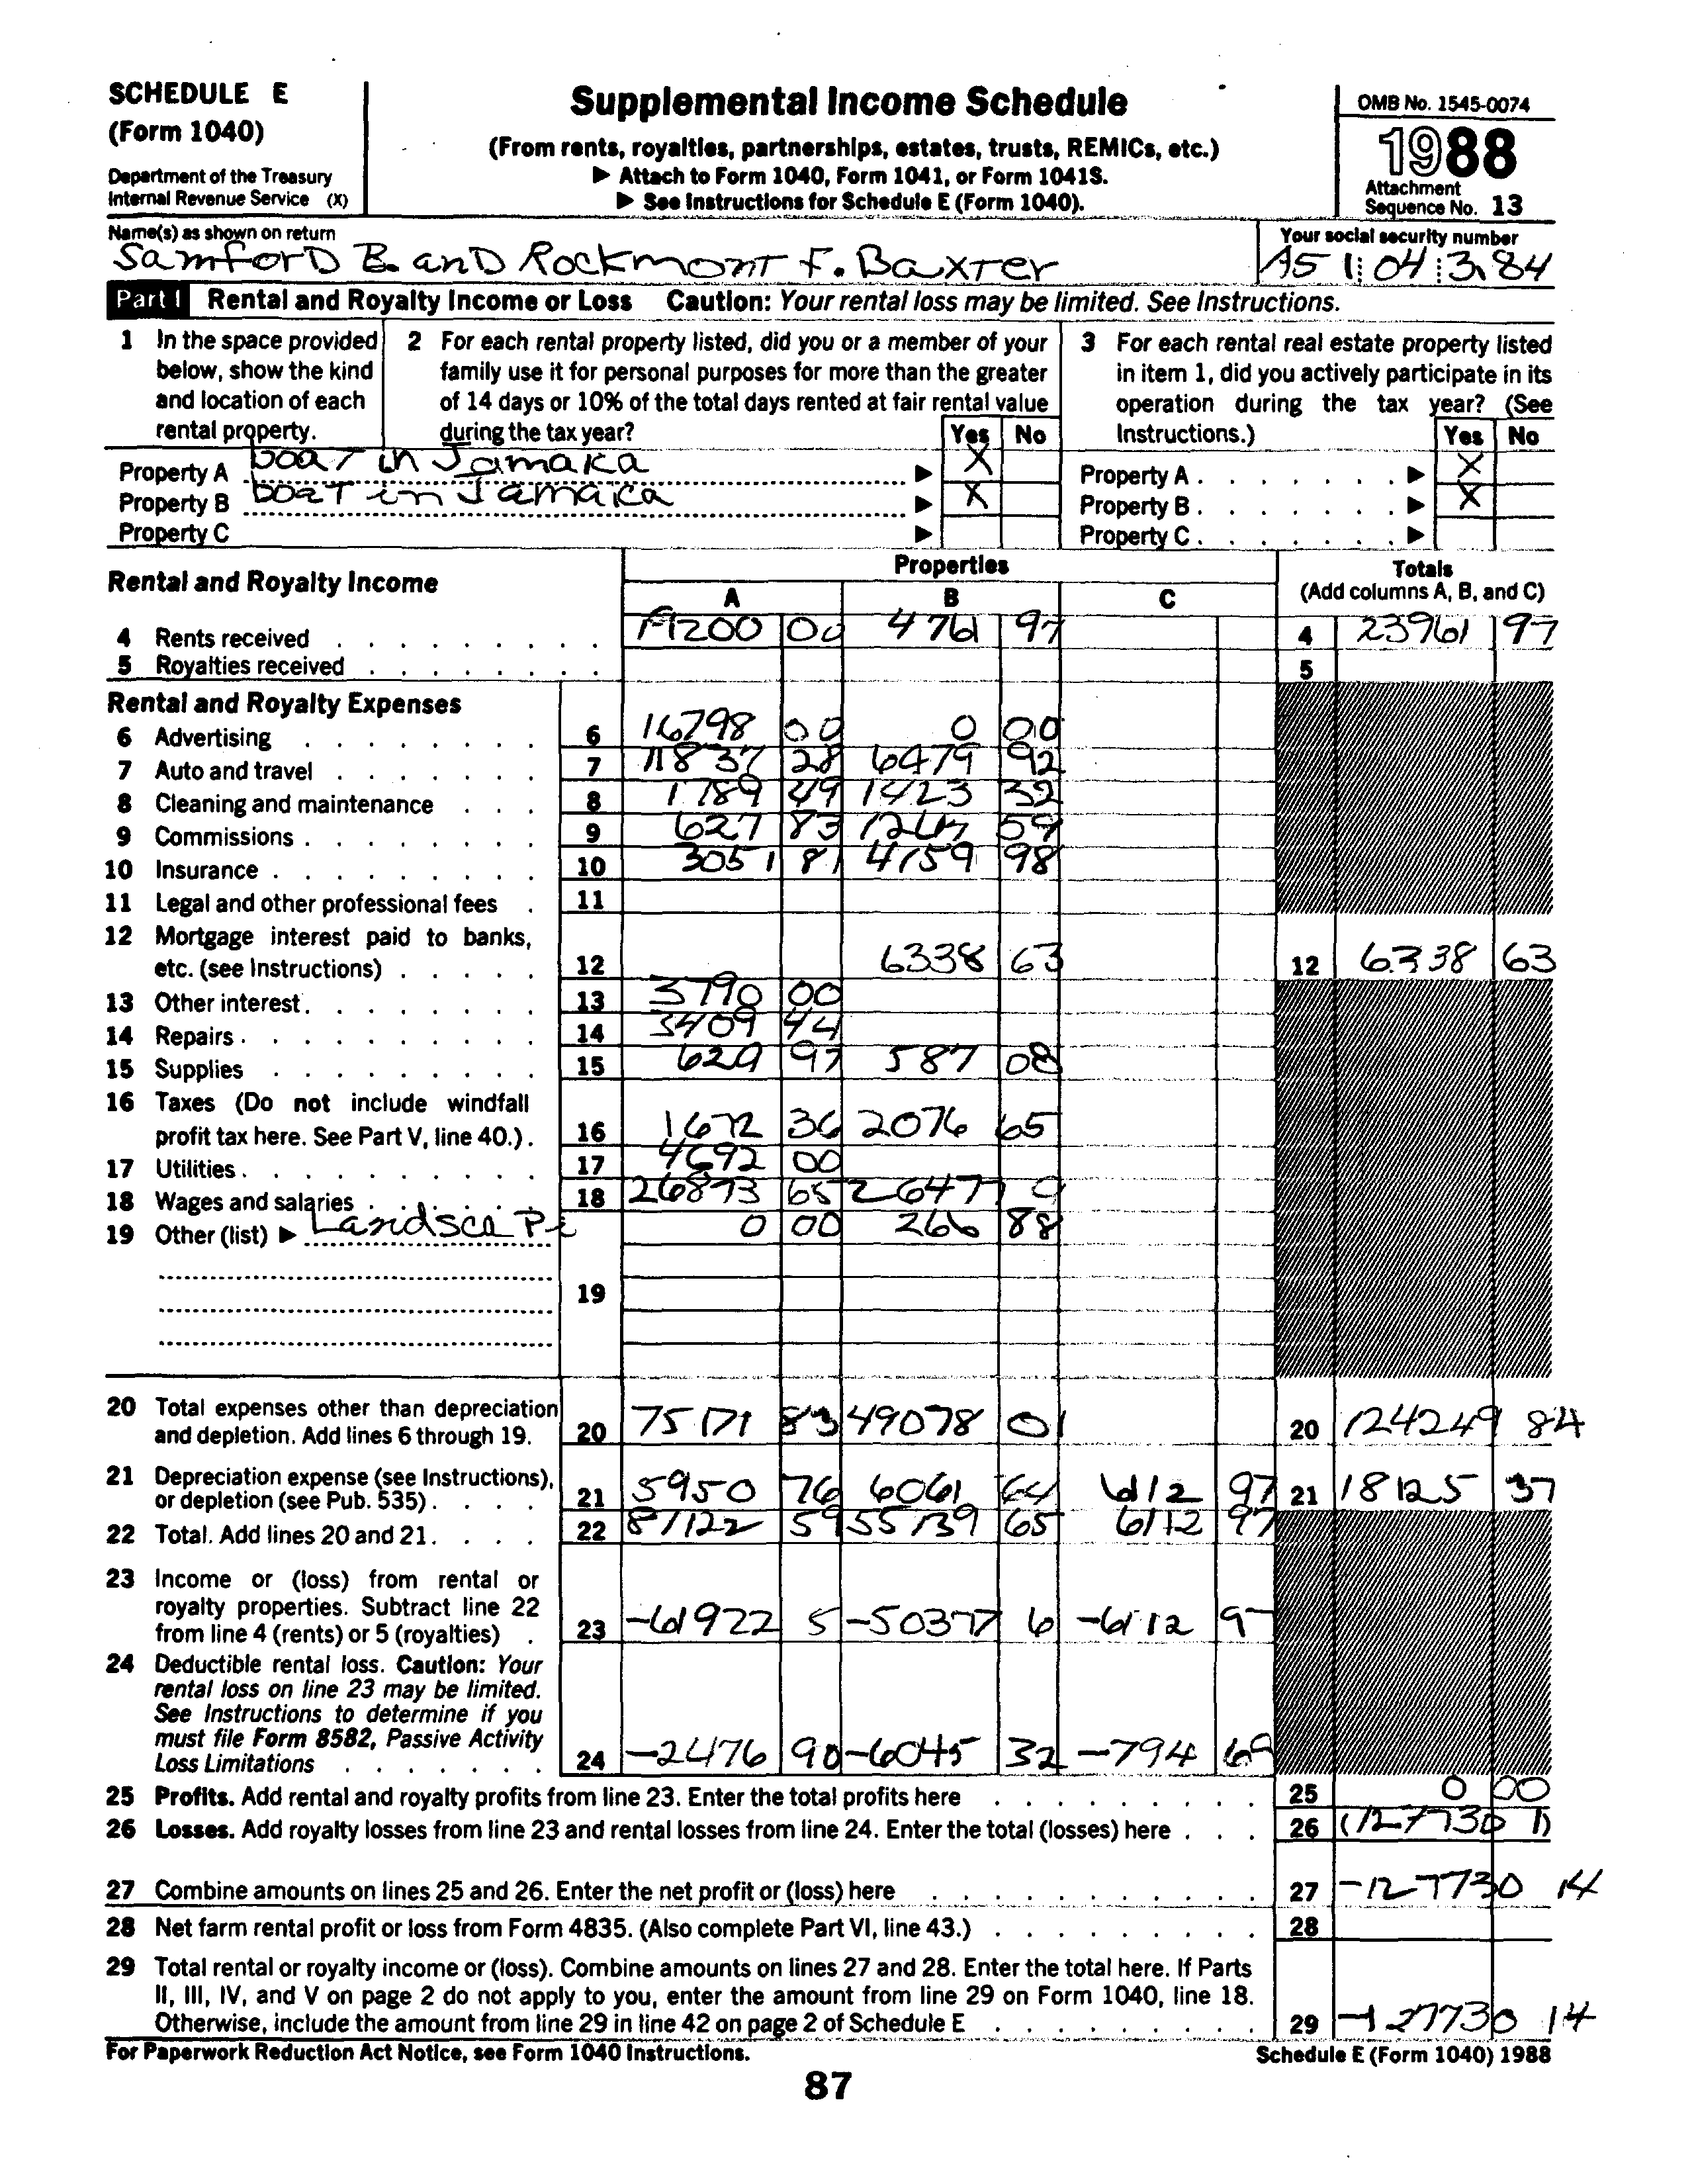 SCHEDULE E
(Form 1040)
Department of the Treasury
Internal Revenue Service (X)
Supplemental Income Schedule
(From rents, royalties, partnerships, estates, trusts, REMICs, etc.)
▶ Attach to Form 1040, Form 1041, or Form 1041S.
▶ See Instructions for Schedule E (Form 1040).
OMB No. 1545-0074
1988
Attachment
Sequence No. 13
Name(s) as shown on return
Samford B. and Rockmont F. Baxter
Your social security number
Part I Rental and Royalty Income or Loss Caution: Your rental loss may be limited. See Instructions.
1 In the space provided
below, show the kind
and location of each
rental property.
2 For each rental property listed, did you or a member of your
family use it for personal purposes for more than the greater
of 14 days or 10% of the total days rented at fair rental value
during the tax year? Yes No
3 For each rental real estate property listed
in item 1, did you actively participate in its
operation during the tax year? (See
Instructions.) Yes No
Property A boat in Jamaka ▶ X Property A ▶ X
Property B boat in Jamaica ▶ X Property B ▶ X
Property C ▶ Property C ▶
Rental and Royalty Income Properties Totals
A B C (Add columns A, B, and C)
4 Rents received 200 00 4761 97 4 23961 97
5 Royalties received 5
Rental and Royalty Expenses
6 Advertising 6 16798 00 0 00
7 Auto and travel 7 11837 28 6479 92
8 Cleaning and maintenance 8 1789 49 1423 32
9 Commissions 9 627 83 59
10 Insurance 10 3051 81 4159 98
11 Legal and other professional fees 11
12 Mortgage interest paid to banks,
etc. (see Instructions) 12 6338 63 12 6338 63
13 Other interest 13 3790 00
14 Repairs 14 3409 44
15 Supplies 15 629 97 587 08
16 Taxes (Do not include windfall
profit tax here. See Part V, line 40.) 16 1672 36 2076 65
17 Utilities 17 4692 00
18 Wages and salaries 18 26873 65 26477
19 Other (list) ▶ Landscapi 0 00 266 88
19
20 Total expenses other than depreciation
and depletion. Add lines 6 through 19. 20 75171 83 49078 01 20 124249 84
21 Depreciation expense (see Instructions),
or depletion (see Pub. 535) 21 5950 76 6061 64 6112 97 21 18125 37
22 Total. Add lines 20 and 21 22 81122 59 55139 65 6112 97
23 Income or (loss) from rental or
royalty properties. Subtract line 22
from line 4 (rents) or 5 (royalties) 23 -61922 5 -50377 6 -6112 9
24 Deductible rental loss. Caution: Your
rental loss on line 23 may be limited.
See Instructions to determine if you
must file Form 8582, Passive Activity
Loss Limitations 24 -2476 90 -6045 32 -794 69
25 Profits. Add rental and royalty profits from line 23. Enter the total profits here 25 0 00
26 Losses. Add royalty losses from line 23 and rental losses from line 24. Enter the total (losses) here 26 (127730 1)
27 Combine amounts on lines 25 and 26. Enter the net profit or (loss) here 27 -127730 14
28 Net farm rental profit or loss from Form 4835. (Also complete Part VI, line 43.) 28
29 Total rental or royalty income or (loss). Combine amounts on lines 27 and 28. Enter the total here. If Parts
II, III, IV, and V on page 2 do not apply to you, enter the amount from line 29 on Form 1040, line 18.
Otherwise, include the amount from line 29 in line 42 on page 2 of Schedule E 29 -127730 14
For Paperwork Reduction Act Notice, see Form 1040 Instructions. Schedule E (Form 1040) 1988
87